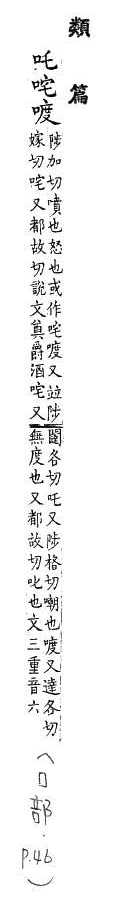 類篇
吒咤喥
陟加切噴也怒也或作咤喥又竝陟
嫁切咤又都故切說文奠爵酒咤又
闥各切吒又陟格切嘲也喥又達各切
無度也又都故切叱也文三重音六
(口部.
P.46)